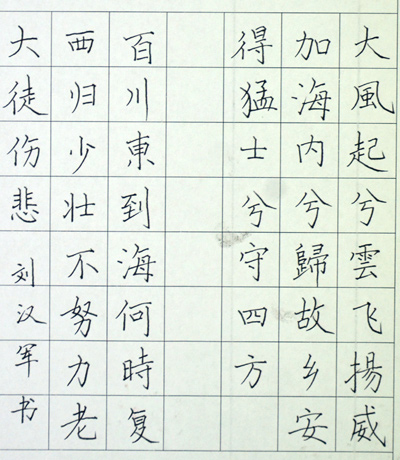 大風起兮雲飞揚威
加海内兮歸故乡安
得猛士兮守四方
百川東到海何時复
西归少壮不努力老
大徒伤悲
刘汉军书